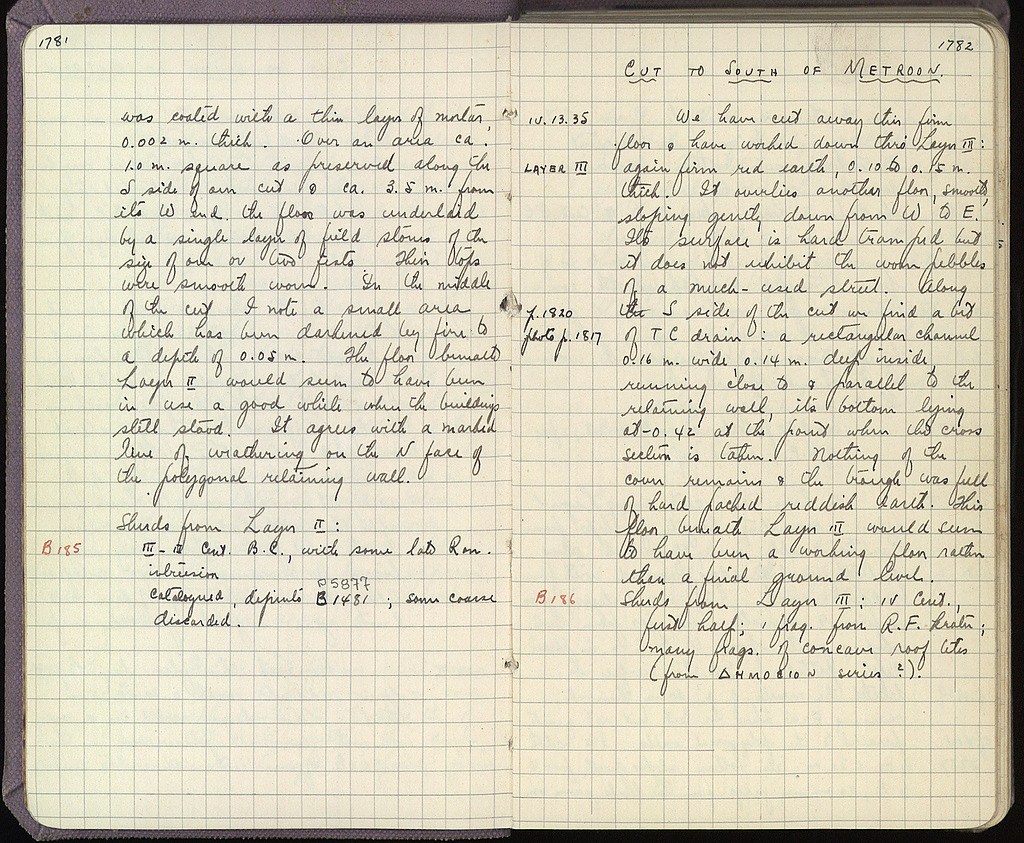 1781
was coated with a thin layer of mortar,
0.002 m. thick. Over an area ca.
1.0 m. square as preserved along the
S side of our cut & ca. 3.5 m. from
its W end. the floor was underlaid
by a single layer of field stones of the
size of one or two fists. Their tops
were smooth worn. In the middle
of the cut I note a small area
which has been darkened by fire to
a depth of 0.05 m. The floor beneath
Layer II would seem to have been
in use a good while when the buildings
still stood. It agrees with a marked
line of weathering on the N face of
the polygonal retaining wall.
Sherds from Layer II:
B 185
III-II Cent. B.C., with some late Rom.
intrusion
P 5877
Catalogued, depinto B 1481; some coarse
discarded.
1782
CUT TO SOUTH OF METROON.
IV.13.35
We have cut away this firm
floor & have worked down thro Layer III:
LAYER III
again firm red earth, 0.10 to 0.15 m.
thick. It overlies another floor, smooth,
sloping gently down from W to E.
Its surface is hard tramped but
it does not exhibit the worn pebbles
of a much-used street. Along
p. 1820
the S side of the cut we find a bit
photo p. 1817
of TC drain: a rectangular channel
0.16 m. wide, 0.14 m. deep inside,
running close to & parallel to the
retaining wall, its bottom lying
at -0.42 at the point when the cross
section is taken. Nothing of the
cover remains & the trough was full
of hard packed reddish earth. This
floor beneath Layer III would seem
to have been a working floor rather
than a final ground level.
B 186
Sherds from Layer III: IV Cent.,
first half; 1 frag. from R.F. Krater;
many frags. of concave roof tiles
(from ΔΗΜΟCΙΟΝ series?).